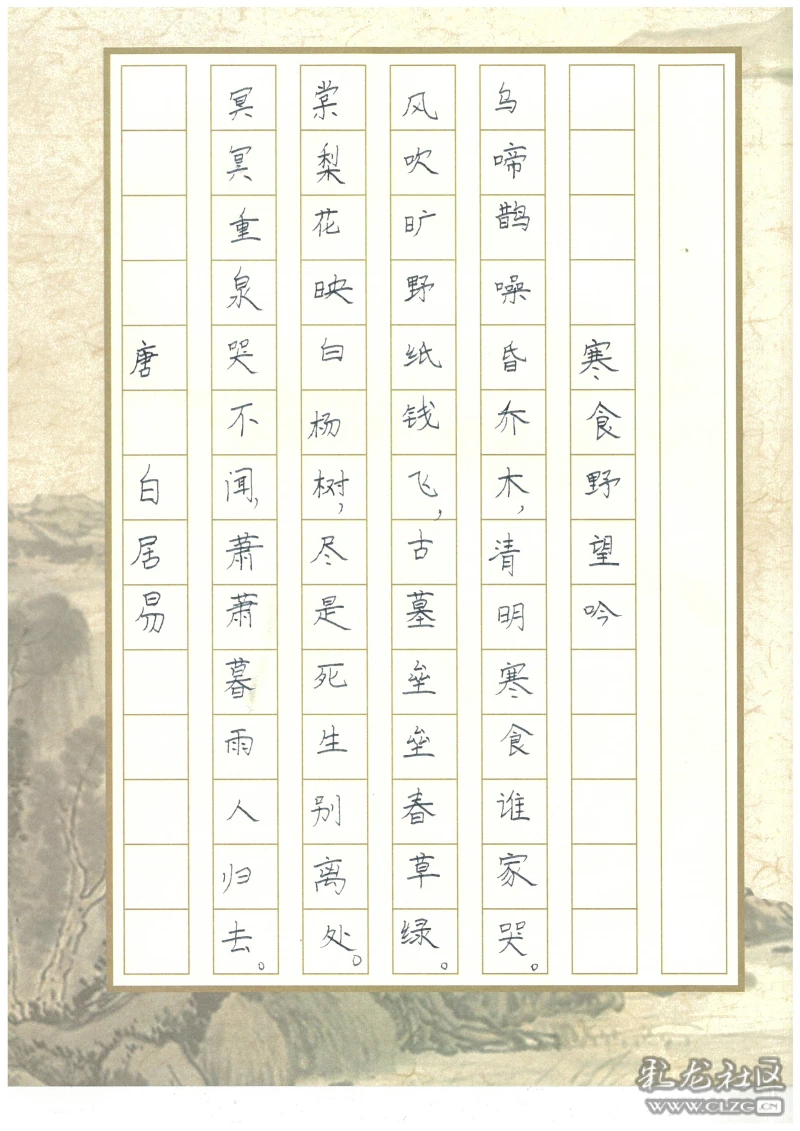 寒食野望吟
乌啼鹊噪昏乔木，清明寒食谁家哭。
风吹旷野纸钱飞，古墓垒垒春草绿。
棠梨花映白杨树，尽是死生别离处。
冥冥重泉哭不闻，萧萧暮雨人归去。
唐 白居易
彩龙社区
WWW.CLZG.CN